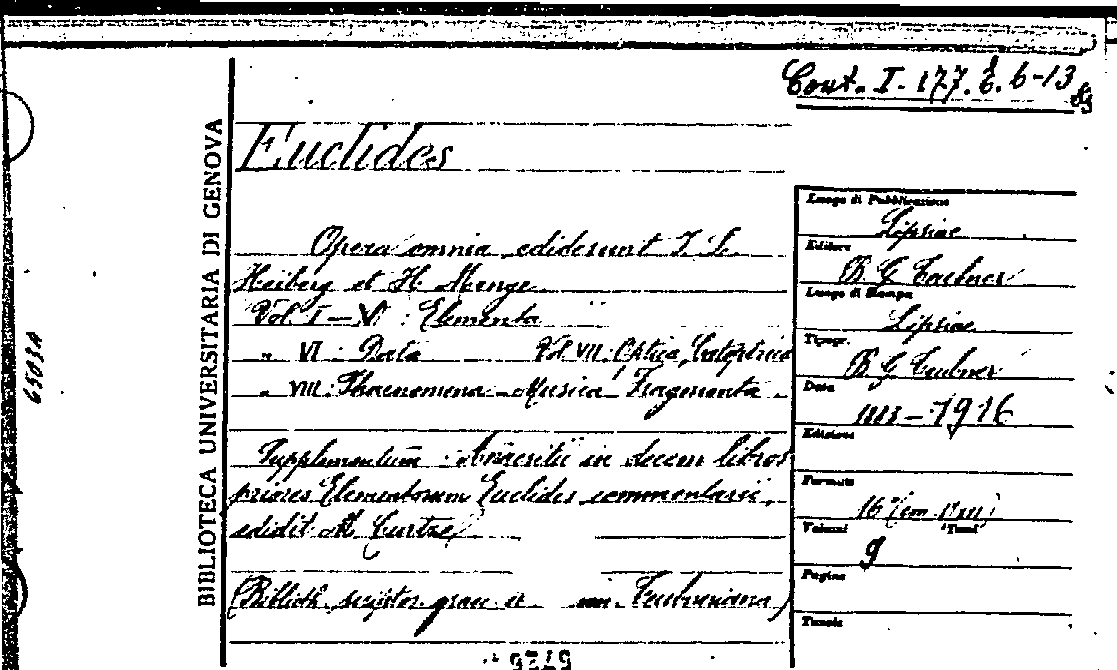 Cont. I. 177. E. 6-13
BIBLIOTECA UNIVERSITARIA DI GENOVA
Euclides
Opera omnia ediderunt I. L.
Heiberg et H. Menge
Vol. I - V : Elementa
" VI : Data Vol VII : Optica, Catoptrica
" VIII : Phaenomena - Musica - Fragmenta -
Supplementum : Anaritii in decem libros
priores Elementorum Euclides commentarii,
edidit M. Curtze
(Biblioth. scriptor. graec et Teubneriana)
Luogo di Pubblicazione
Lipsiae
Editore
B. G. Teubner
Luogo di Stampa
Lipsiae
Tipogr.
B. G. Teubner
Data
1883-1916
Edizione
Formato
16° (cm
Volumi Tomi
9
Pagine
Tavole